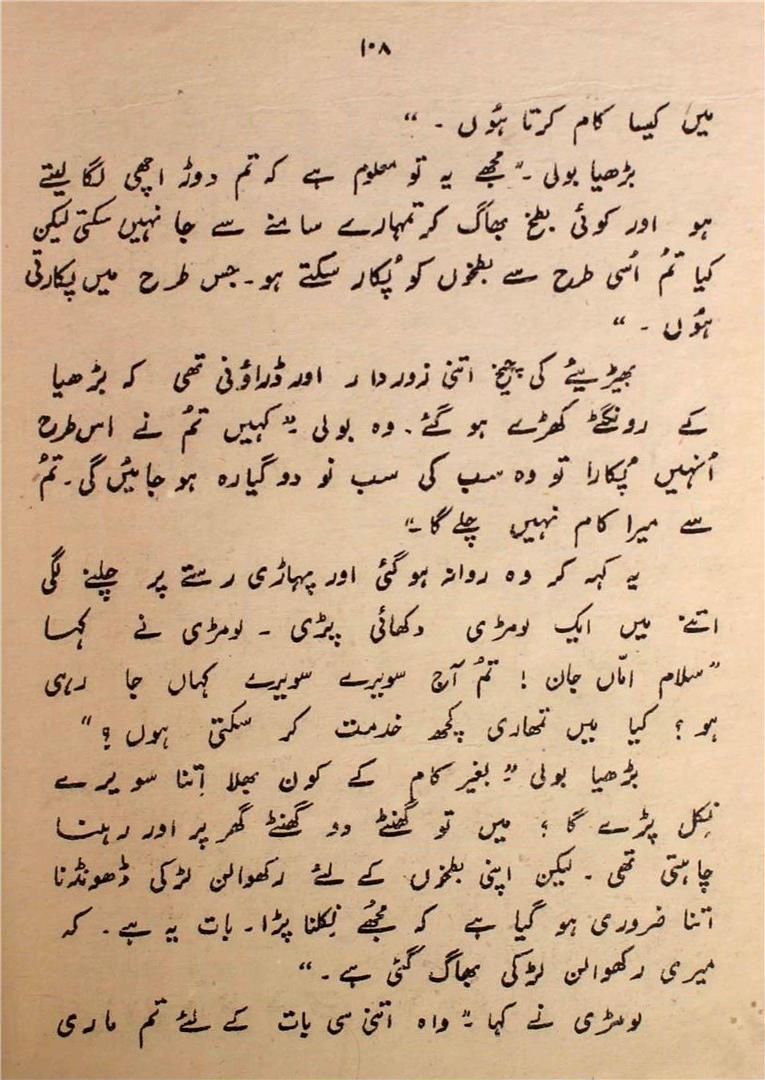 ۱۰۸
میں کیسا کام کرتا ہُوں ۔ “
بڑھیا بولی ۔” مُجھے یہ تو معلوم ہے کہ تم دوڑ اچھی لگا لیتے
ہو اور کوئی بطخ بھاگ کر تمہارے سامنے سے جا نہیں سکتی لیکن
کیا تمُ اُسی طرح سے بطخوں کو پُکار سکتے ہو۔ جس طرح میں پکارتی
ہوُں ۔ “
بھیڑیئے کی چیخ اتنی زوردار اور ڈراؤنی تھی کہ بڑھیا
کے رونگٹے کھڑے ہو گئے ۔ وہ بولی ۔” کہیں تمُ نے اس طرح
اُنہیں پُکارا تو وہ سب کی سب نو دو گیارہ ہو جائیں گی ۔ تمُ
سے میرا کام نہیں چلے گا ۔“
یہ کہہ کر وہ روانہ ہو گئی اور پہاڑی رستے پر چلنے لگی
اتنے میں ایک لومڑی دکھائی پڑی ۔ لومڑی نے کہا
”سلام امّاں جان ! تمُ آج سویرے سویرے کہاں جا رہی
ہو ؟ کیا میں تمھاری کچھ خدمت کر سکتی ہوں ؟ “
بڑھیا بولی ۔” بغیر کام کے کون بھلا اِتنا سویرے
نِکل پڑے گا ؟ میں تو گھنٹے دو گھنٹے گھر پر اور رہنا
چاہتی تھی ۔ لیکن اپنی بطخوں کے لئے رکھوالن لڑکی ڈھونڈنا
اتنا ضروری ہو گیا ہے کہ مُجھے نِکلنا پڑا ۔ بات یہ ہے ۔ کہ
میری رکھوالن لڑکی بھاگ گئی ہے ۔ “
لومڑی نے کہا ۔” واہ اتنی سی بات کے لئے تم ماری